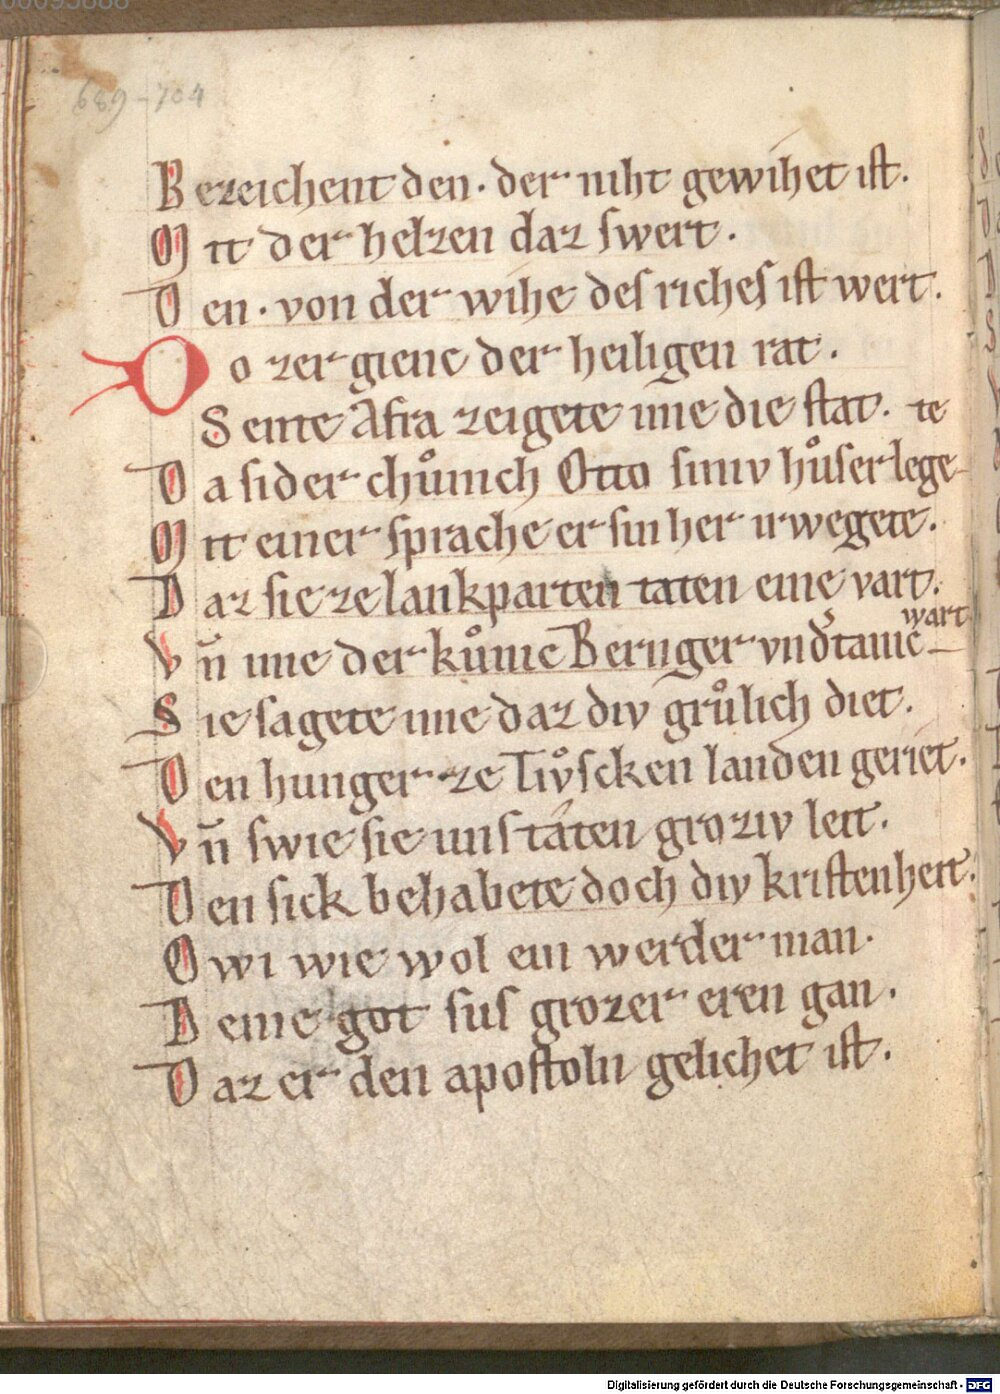 00095688
689-704
Bezeichent den · der niht gewihet ist.
Mit der helzen daz swert.
Den · von der wihe des riches ist wert.
Do zergienc der heiligen rat.
Sente Afra zeigete ime die stat.
Da sider chuͦnich Otto siniv huͦser legete
Mit einer sprache er sin her irwegete.
Daz sie ze lankparten taten eine vart.
Vn̄ ime der kuͦnic Bernger vnd᷑tanic wart
Sie sagete ime daz div gruͦlich diet.
Den hunger ze Tivͦscken landen geriet.
Vn̄ swie sie uns táten groziv leit.
Den sick behabete doch div kristenheit.
Owi wie wol ein werder man.
Deme got sus grozer eren gan.
Daz er den apostoln gelichet ist.
Digitalisierung gefördert durch die Deutsche Forschungsgemeinschaft - DFG